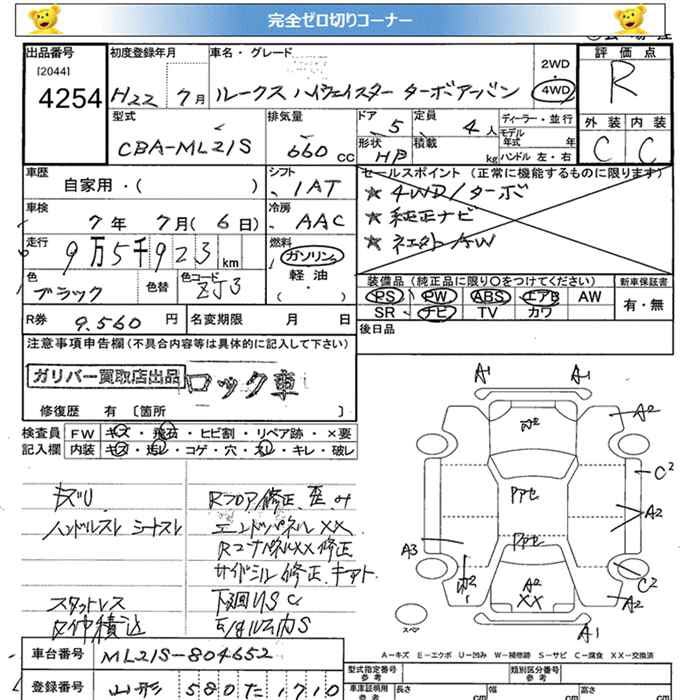 完全ゼロ切りコーナー
出品番号 初度登録年月 車名・グレード 評価点
[2044]
4254 H22 7月 ルークス ハイウェイスター ターボアーバン 2WD 4WD R
型式 排気量 ドア 定員 ディーラー・並行 外装 内装
CBA-ML21S 660 CC 5 4人 モデル年式 年 C C
形状 HB 積載 kg ハンドル 左・右
車歴 シフト セールスポイント (正常に機能するものに限ります)
自家用・( ) 1AT ★4WD/ターボ
車検 冷房 ★純正ナビ
7年 7月(6日) AAC ★社外AW
走行 燃料
9万5千923km ガソリン
軽油
( ・ )
色 色替 色コード 装備品(純正品に限り○をつけてください) 新車保証書
ブラック ZJ3 PS PW ABS エアB AW 有・無
SR ナビ TV カワ
R券 9.560円 名変期限 月 日 後日品
注意事項申告欄(不具合内容等は具体的に記入して下さい)
ガリバー買取店出品 ロック車
修復歴 有〔箇所 〕
検査員 FW キズ・飛石・ヒビ割・リペア跡・×要
記入欄 内装 キズ・汚レ・コゲ・穴・スレ・キレ・破レ
キズU Rフロア修正、歪み
ハンドルスレ シートスレ エンドパネルXX
RコーナパネルXX修正
サイドシル修正、キアト
スタットレス 下廻りSC
タイヤ積込
A1 A1
A2
C2
A2
A3
C2
A2
A2
XX
A1
スペア
A-キズ E-エクボ U-凹み W-補修跡 S-サビ C-腐食 XX-交換済
車台番号 ML21S-804652
登録番号 山形 580 た 1710
型式指定番号 参考 類別区分番号 参考
車庫証明用 参考 長さ cm 幅 cm 高さ cm